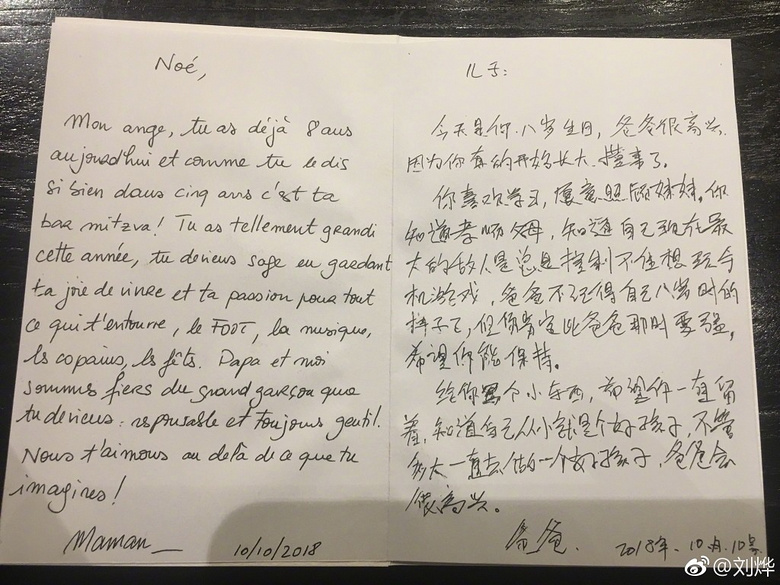 Noé,
Mon ange, tu as déjà 8 ans
aujourd'hui et comme tu le dis
si bien dans cinq ans c'est ta
bar mitzva! Tu as tellement grandi
cette année, tu deviens sage en gardant
ta joie de vivre et ta passion pour tout
ce qui t'entoure, le FOOT, la musique,
les copains, les fêts. Papa et moi
sommes fiers du grand garçon que
tu deviens : responsable et toujours gentil.
Nous t'aimons au delà de ce que tu
imagines!
Maman
10/10/2018
儿子:
今天是你八岁生日,爸爸很高兴
因为你真的开始长大、懂事了。
你喜欢学习,愿意照顾妹妹。你
知道孝顺父母,知道自己现在最
大的敌人是总是控制不住想玩手
机游戏,爸爸不记得自己八岁时的
样子了,但你肯定比爸爸那时要强,
希望你能保持。
给你写个小东西,希望你一直留
着,知道自己从小就是个好孩子,不管
多大一直去做一个好孩子,爸爸会
很高兴。
爸爸.
2018年.10月.10号
@刘烨